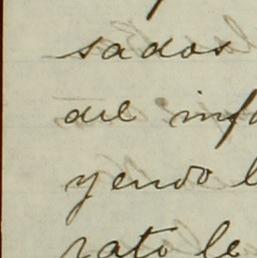 sados
del inf
yendo l
rato le